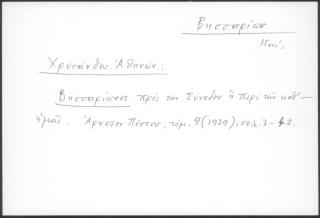 Βησσαρίων
15ος αἰ.
Χρυσάνθου Ἀθηνῶν:
Βησσαρίωνος πρὸς τὴν Σύνοδον ἢ περὶ τῶν καθ'
ἡμᾶς. Ἀρχεῖον Πόντου, τόμ. 9 (1939), σελ. 3-42.